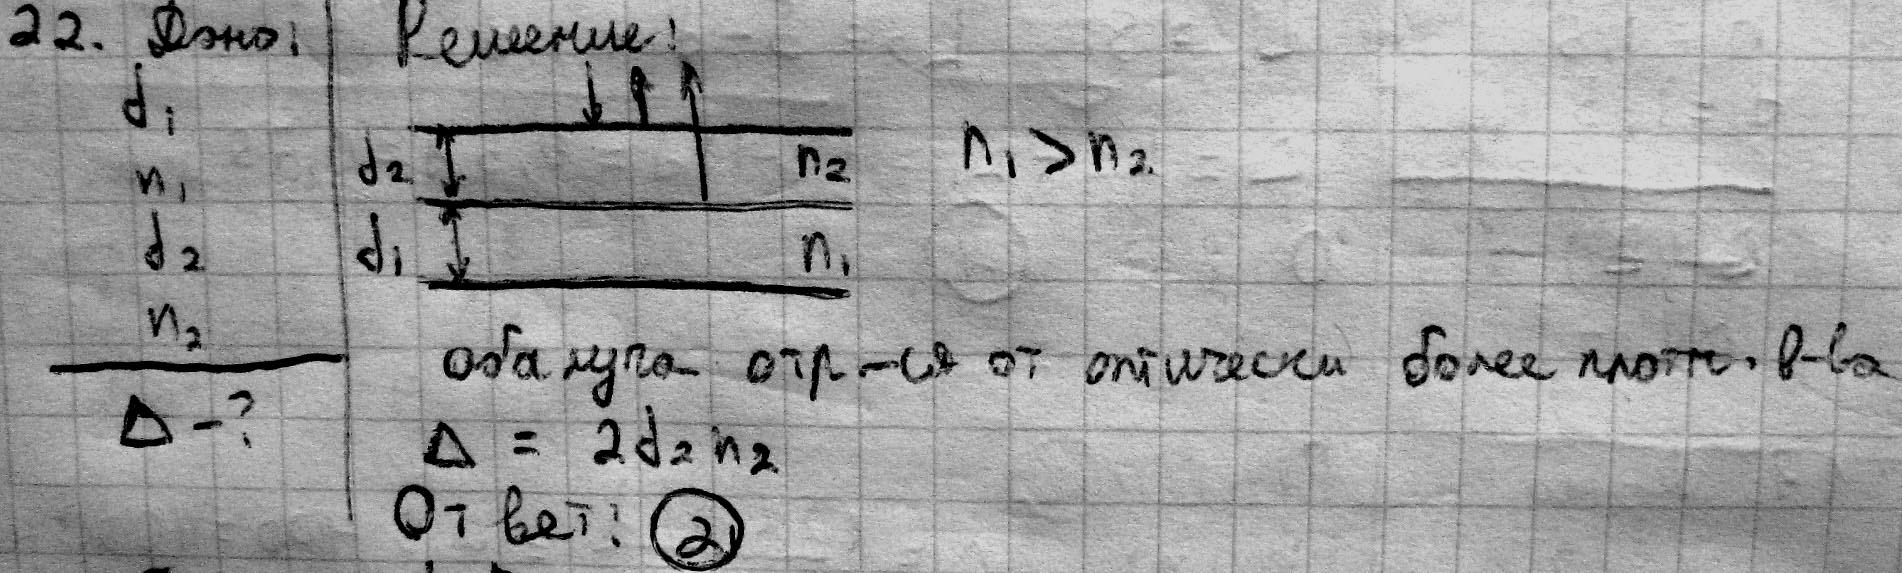 22. Дано:
d₁
n₁
d₂
n₂
Δ - ?
Решение:
d₂ n₂
d₁ n₁
n₁ > n₂
оба луча отр-ся от оптически более плотн. в-ва
Δ = 2d₂n₂
Ответ: 2